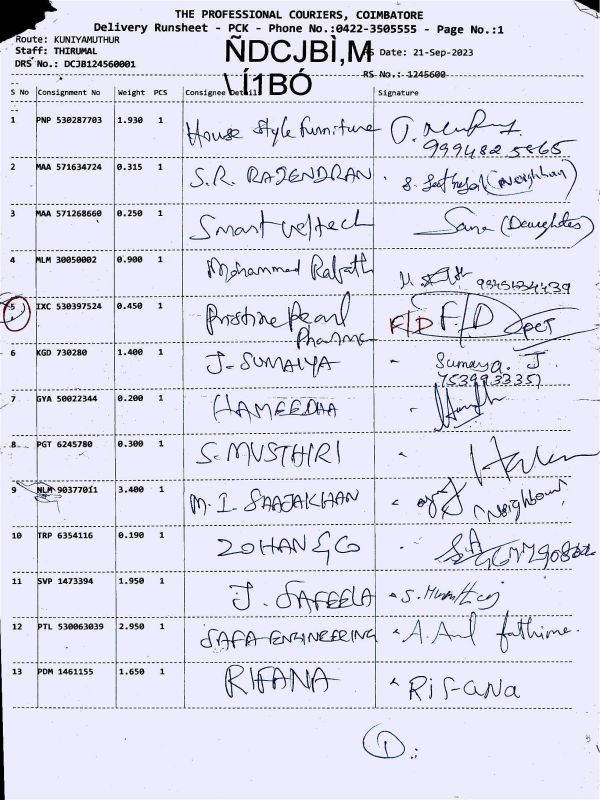 THE PROFESSIONAL COURIERS, COIMBATORE
Delivery Runsheet - PCK - Phone No.:0422-3505555 - Page No.:1
Route: KUNIYAMUTHUR
Staff: THIRUMAL ÑDCJBÌ,M Date: 21-Sep-2023
DRS No.: DCJB124560001 \Í1BÓ RS No.: 1245600
S No Consignment No Weight PCS Consignee Details Signature
1 PNP 530287703 1.930 1 House style furniture
9994825865
2 MAA 571634724 0.315 1 S.R. RAJENDRAN (Neighbour)
3 MAA 571268660 0.250 1 Smart (Daughter)
4 MLM 30050002 0.900 1 Mohammed Rafath
5 IXC 530397524 0.450 1 Pristine Pearl Pharma F/D F/D
6 KGD 730280 1.400 1 J-SUMAIYA Sumaya. J
7539933351
7 GYA 50022344 0.200 1 HAMEEDHA
8 PGT 6245780 0.300 1 S. MUSTHIRI
9 NLM 90377011 3.400 1 M. I. SAAJAKHAN (Neighbour)
10 TRP 6354116 0.190 1 ZOHAN & CO
11 SVP 1473394 1.950 1 J. SAFEELA
12 PTL 530063039 2.950 1 SAFA ENGINEERING A. Aul fathima.
13 PDM 1461155 1.650 1 RIFANA Rifana
1